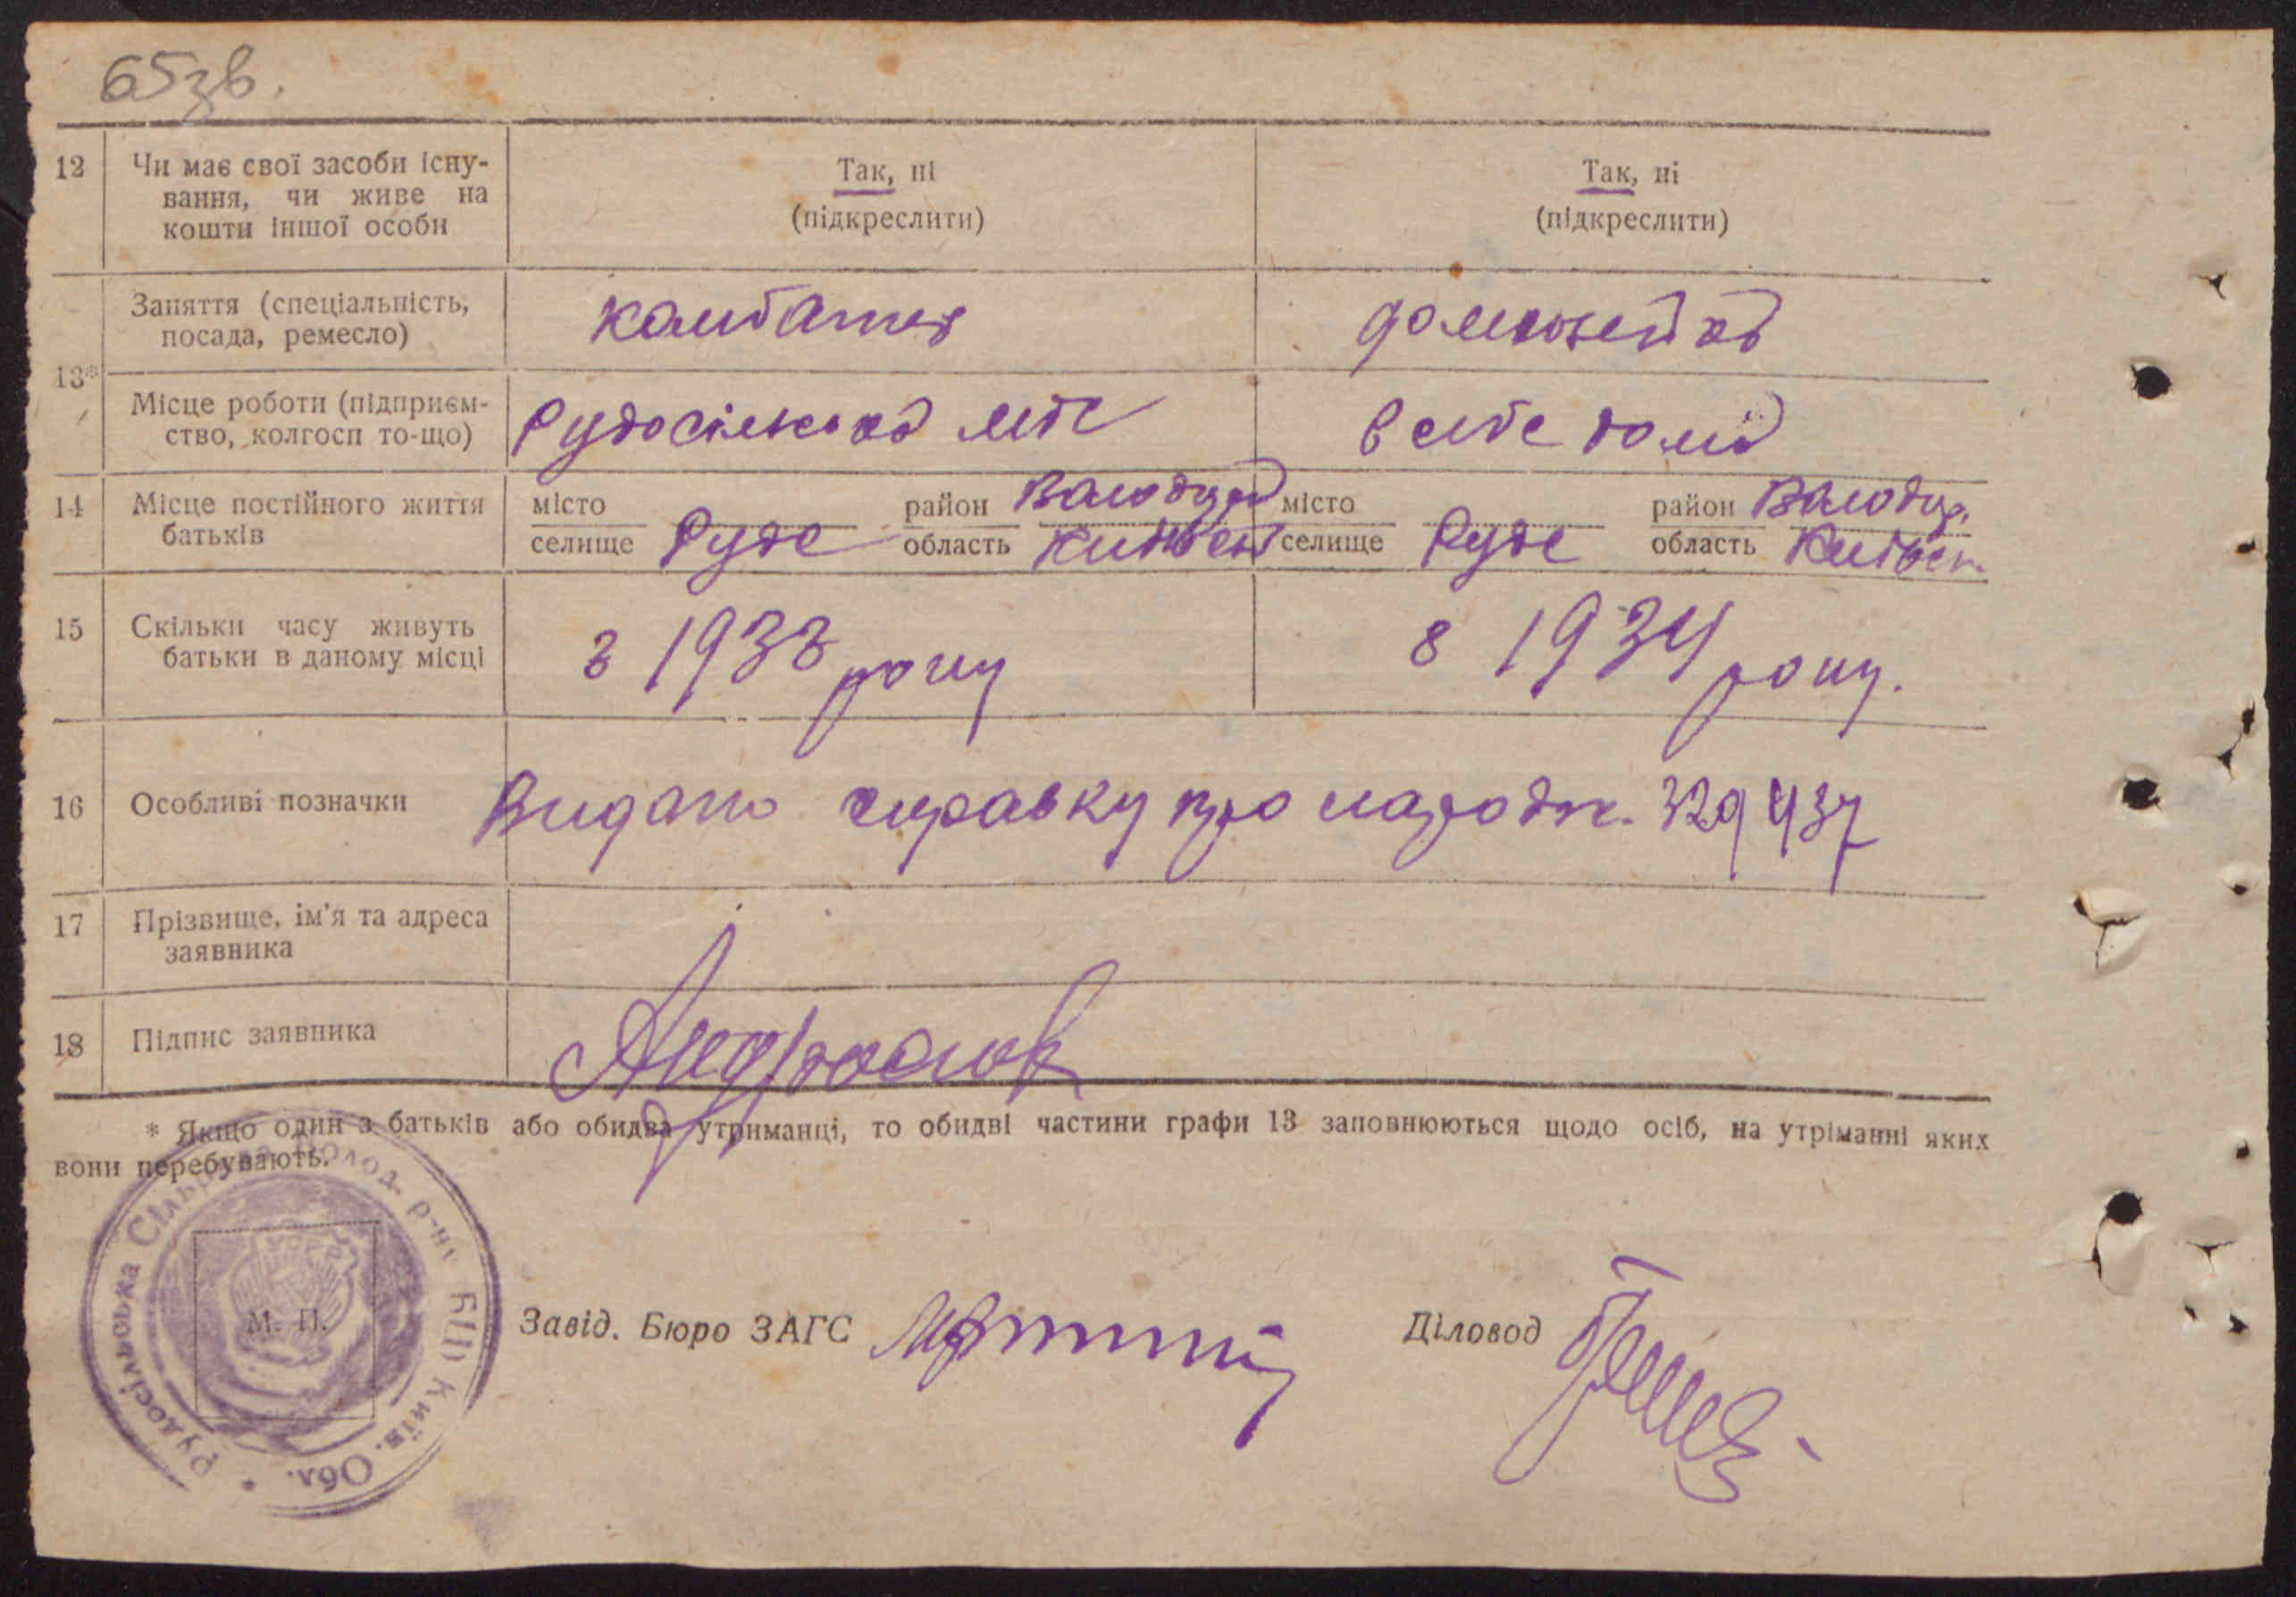 65зв.
12 Чи має свої засоби існу-
вання, чи живе на
кошти іншої особи
Так, ні
(підкреслити)
Так, ні
(підкреслити)
13*
Заняття (спеціальність,
посада, ремесло)
Місце роботи (підприєм-
ство, колгосп то-що)
Рудосільська мтс
14 Місце постійного життя
батьків
місто
селище Руде
район Володар
область Київськ
місто
селище Руде
район Володар.
область Київськ.
15 Скільки часу живуть
батьки в даному місці
з 1933 року
з 1934 року.
16 Особливі позначки
Видано справку про народж. 329437
17 Прізвище, ім'я та адреса
заявника
18 Підпис заявника
* Якщо один з батьків або обидва утриманці, то обидві частини графи 13 заповнюються щодо осіб, на утріманні яких
вони перебувають.
Рудосільська Сільрада Волод. р-ну БЦ Київ. Обл. *
М. П.
Завід. Бюро ЗАГС
Діловод